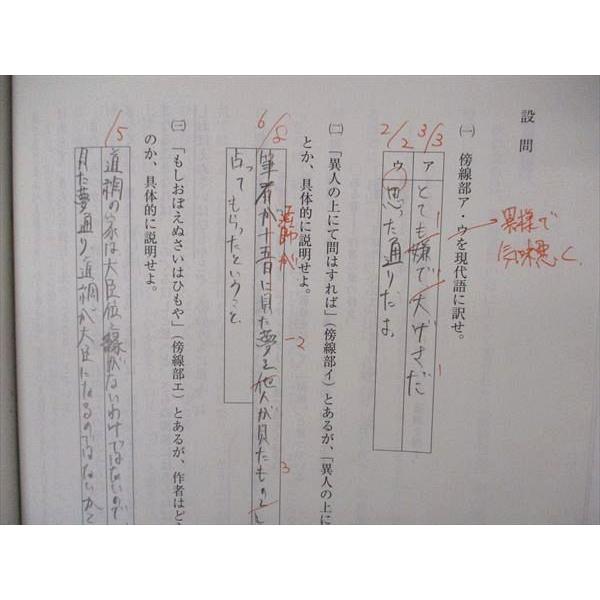 設問
㈠ 傍線部ア・ウを現代語に訳せ。
異様で
気味悪く
3/3
ア とても嫌で大げさだ
1
1
2/2
ウ 思った通りだよ
㈡ 「異人の上にて問はすれば」(傍線部イ)とあるが、「異人の上に
とか、具体的に説明せよ。
法師が
6/8
筆者が十五日に見た夢を他人が見たものとし
-2
3
占ってもらったということ
㈢ 「もしおぼえぬさいはひもや」(傍線部エ)とあるが、作者はど
のか、具体的に説明せよ。
/5
道綱の家は大臣位に縁がないわけではないので
見た夢通り、道綱が大臣になるのではないかと